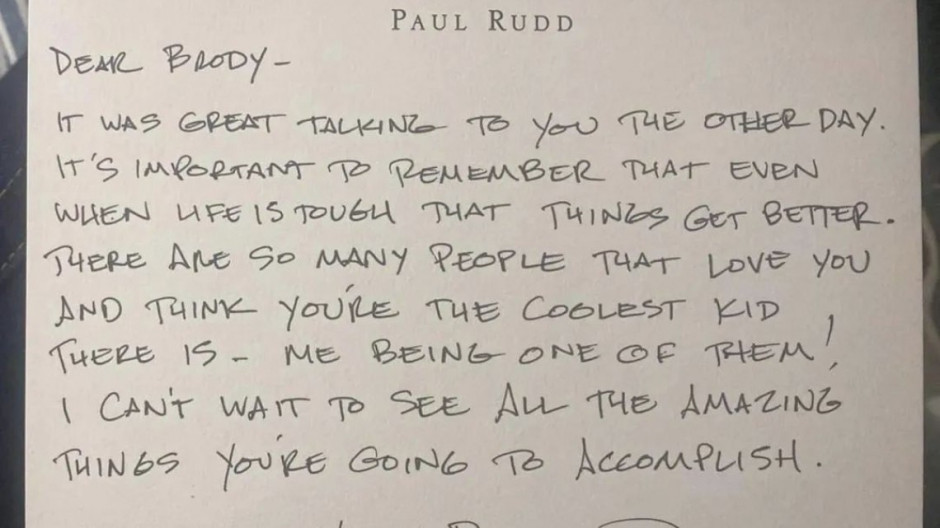 PAUL RUDD
DEAR BRODY-
IT WAS GREAT TALKING TO YOU THE OTHER DAY.
IT'S IMPORTANT TO REMEMBER THAT EVEN
WHEN LIFE IS TOUGH THAT THINGS GET BETTER.
THERE ARE SO MANY PEOPLE THAT LOVE YOU
AND THINK YOU'RE THE COOLEST KID
THERE IS - ME BEING ONE OF THEM!
I CAN'T WAIT TO SEE ALL THE AMAZING
THINGS YOU'RE GOING TO ACCOMPLISH.